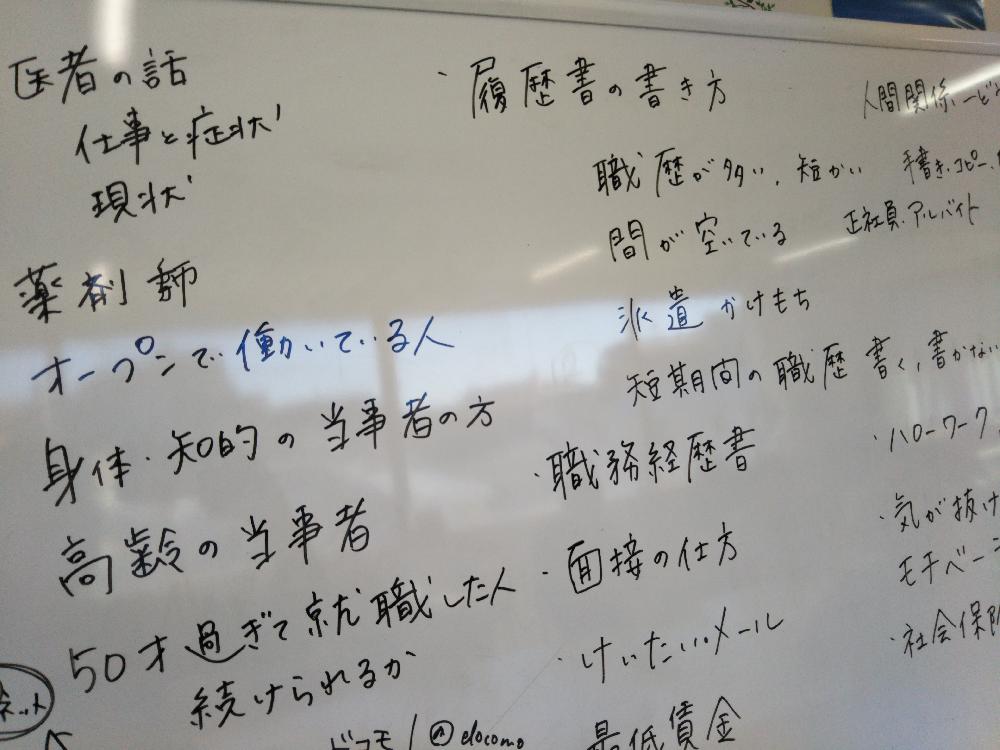 医者の話
仕事と症状
現状
薬剤師
オープンで働いている人
身体・知的の当事者の方
高齢の当事者
50才過ぎて就職した人
続けられるか
ネット
ドコモ/@docomo
・履歴書の書き方
職歴が多い、短かい
間が空いている
派遣 かけもち
短期間の職歴 書く、書かない
・職務経歴書
・面接の仕方
・けいたいメール
最低賃金
人間関係
手書き、コピー、
正社員、アルバイト
・ハローワーク
・気が抜け
モチベー
・社会保